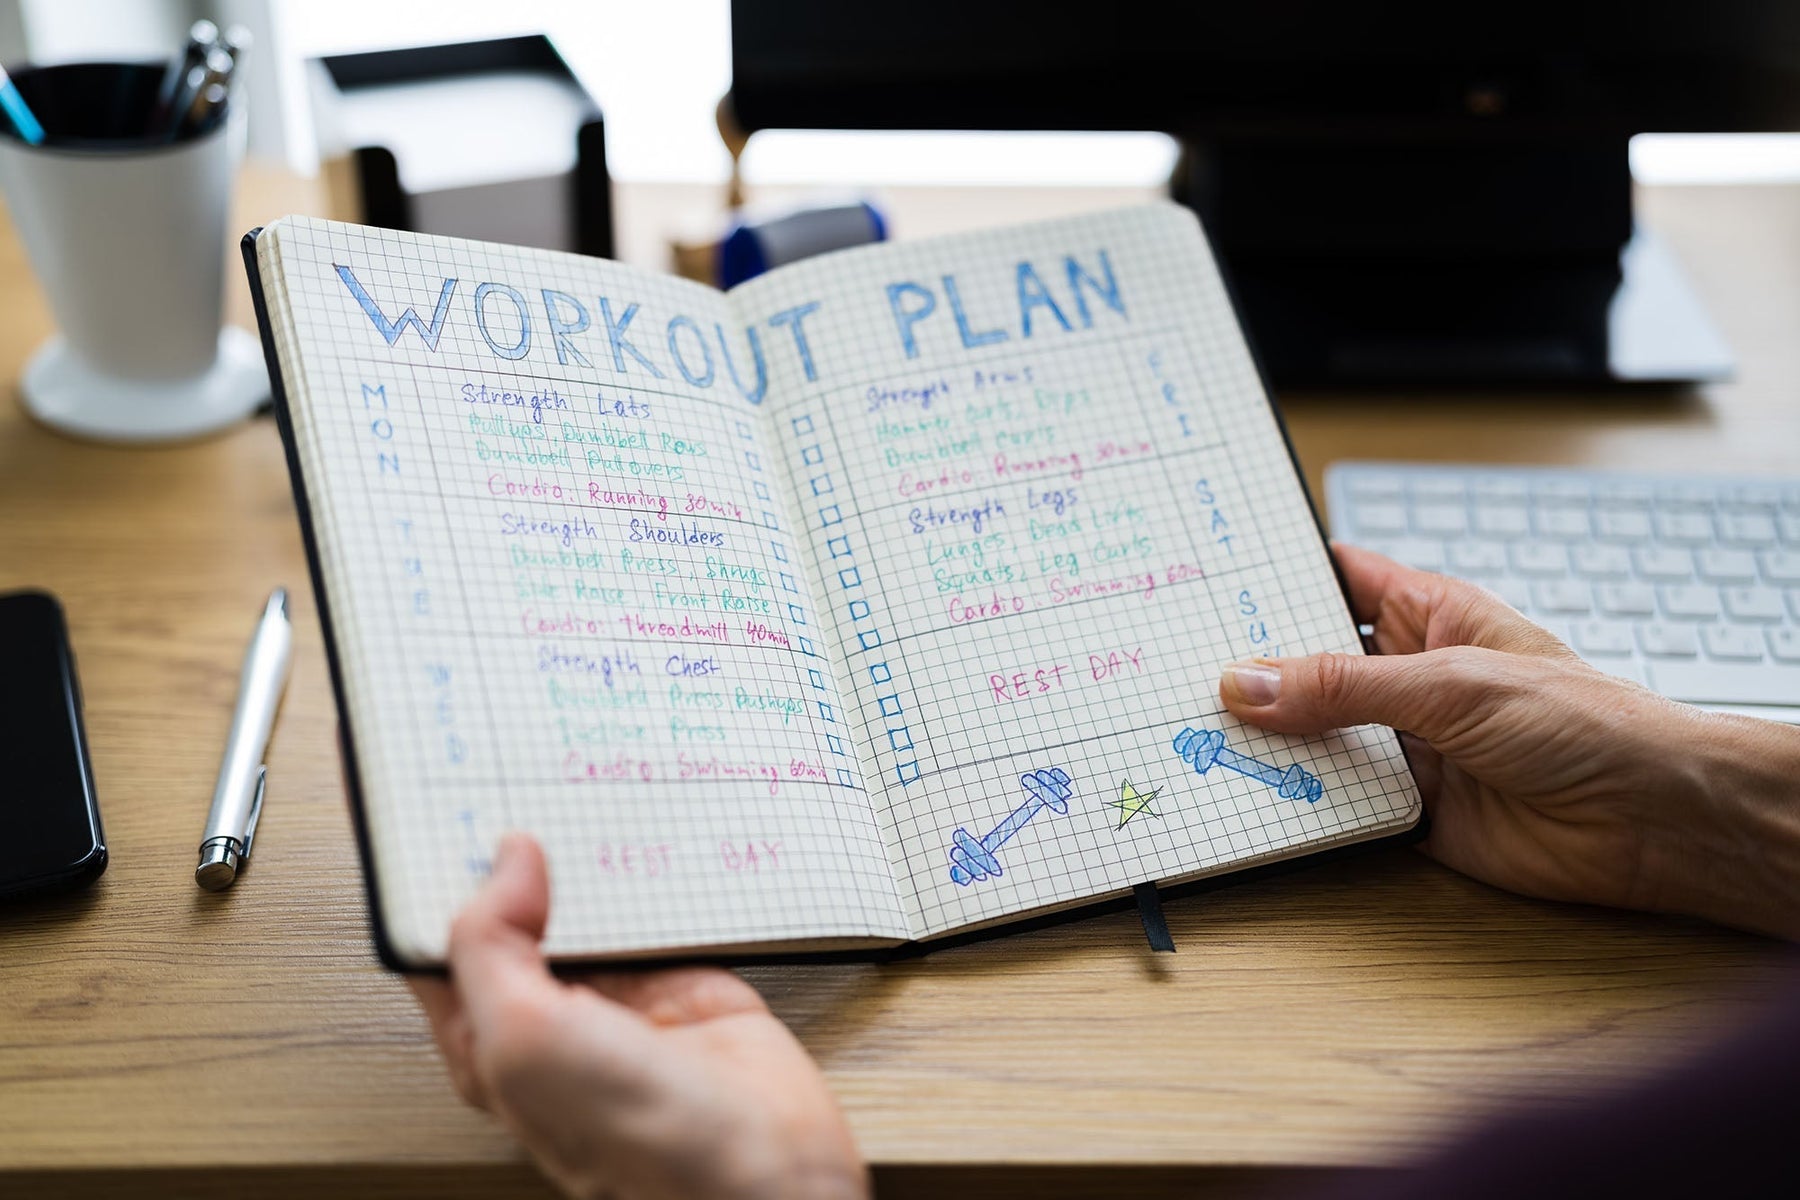 WORKOUT PLAN
MON
Strength Lats
Pullups, Dumbbell Rows
Dumbbell Pullovers
Cardio: Running 30min
TUE
Strength Shoulders
Dumbbell Press, Shrugs
Side Raise, Front Raise
Cardio: Threadmill 40min
WED
Strength Chest
Dumbbell Press Pushups
Incline Press
Cardio Swimming 60min
REST DAY
FRI
Strength Arms
Hammer Curls, Dips
Dumbbell Curls
Cardio: Running 30min
SAT
Strength Legs
Lunges, Dead Lifts
Squats, Leg Curls
Cardio: Swimming 60m
REST DAY